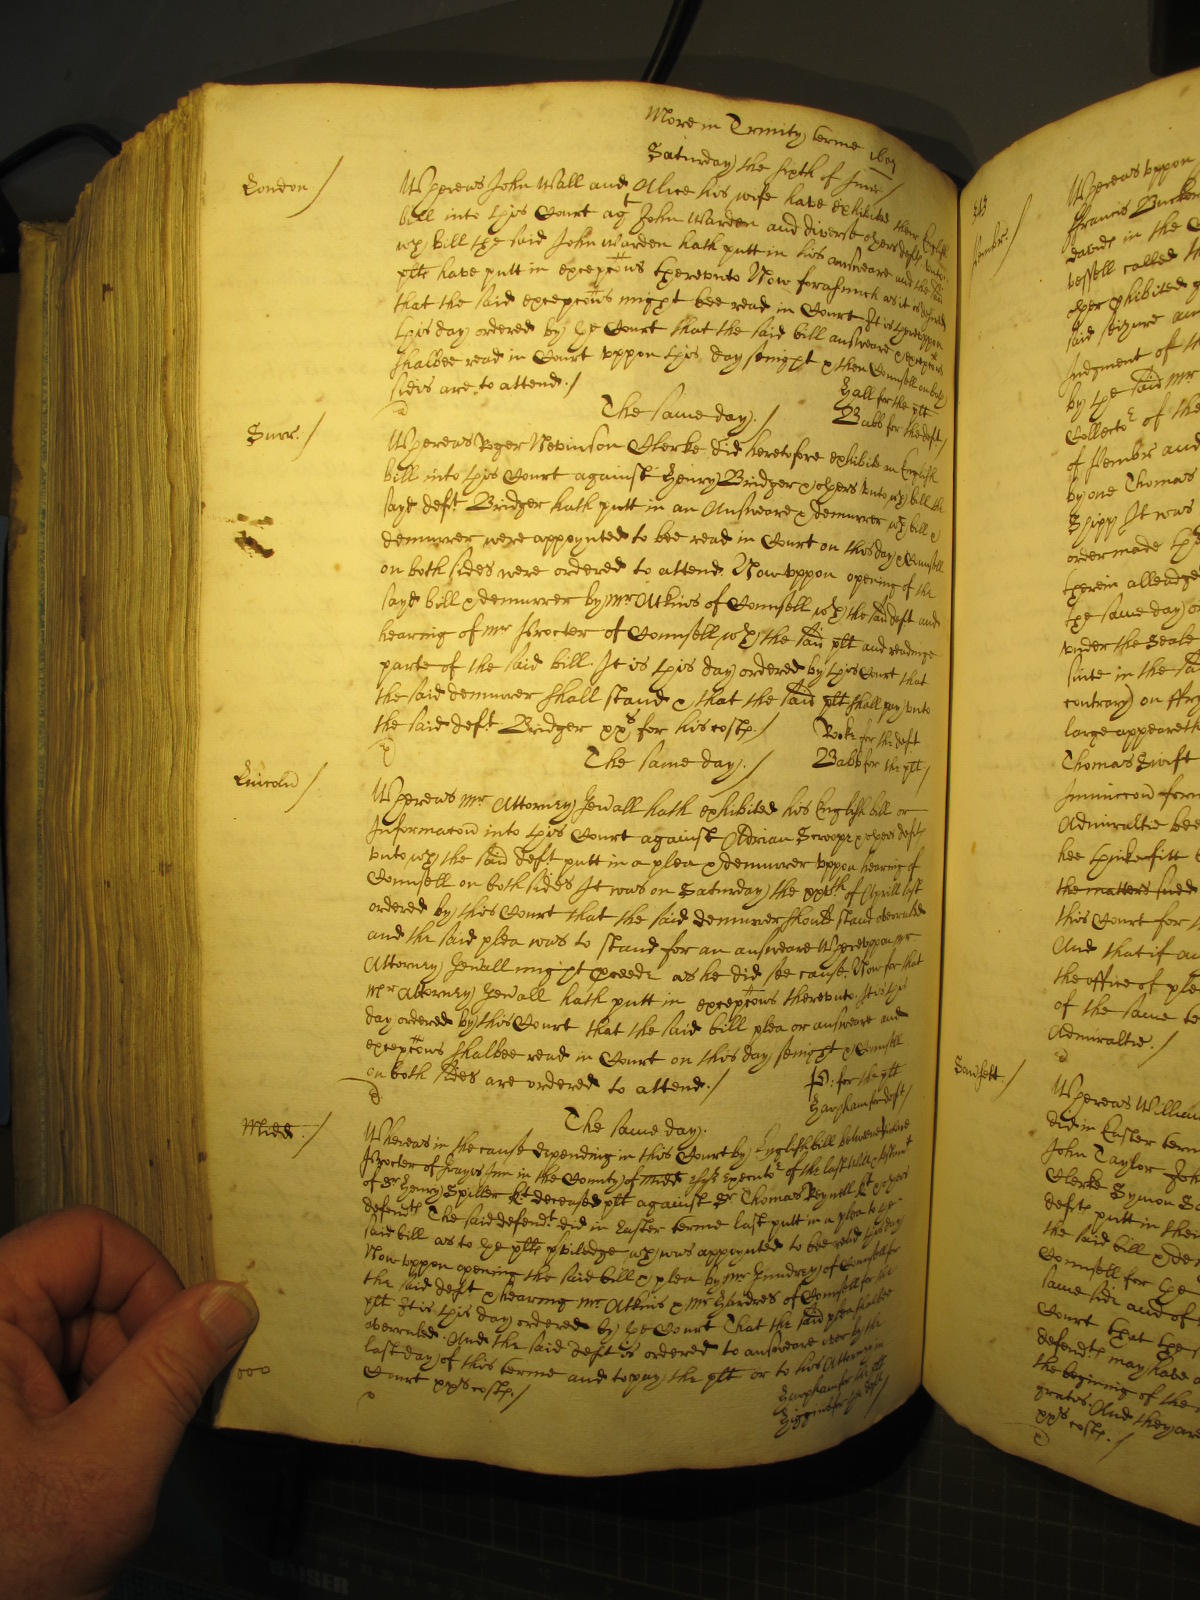 More in Trinity terme
Saturday the sixth of June /
London /
Whereas John Wall and Alice his wife have exhibited their English
bill into this Court agt John Warden and diverse others defts unto
wch bill the said John Warden hath putt in his answeare and the said
plts have putt in excepcons thereunto Now forasmuch as it is desired
that the said excepcons might bee read in Court It is thereuppon
this day ordered by the Court that the said bill answeare & excepcons
shalbee read in Court uppon this day senight & then Counsell on both
sides are to attend. /
Hall for the plt
Babb for the deft /
The same day. /
Surr. /
Whereas Roger Nevinson Clerke did heretofore exhibite an English
bill into this Court against Henry Bridger & others unto wch bill the
sayd deft Bridger hath putt in an Answeare & demurrer wch bill &
demurrer were appoynted to bee read in Court on this day & Counsell
on both sides were ordered to attend. Now uppon opening of the
sayd bill & demurrer by Mr Atkins of Counsell wth the said deft and
hearing of Mr Procter of Counsell wth the said plt and readinge
parte of the said bill. It is this day ordered by this Court that
the said demurrer shall stand & that the said plt shall pay unto
the said deft Bridger xxs for his costs. /
for the deft
Babb for the plt /
The same day. /
Lincoln /
Whereas Mr Attorney Gen'all hath exhibited his English bill or
Informacon into this Court against Adrian Scroope & others defts
unto wch the said deft putt in a plea & demurrer uppon hearing of
Counsell on both sides It was on Saturday the of Aprill last
ordered by this Court that the said demurrer should stand overruled
and the said plea was to stand for an answeare Whereuppon Mr
Attorney Gen'all might proceede as he did see cause. Now for that
Mr Attorney Gen'all hath putt in excepcons thereunto It is this
day ordered by this Court that the said bill plea or answeare and
excepcons shalbee read in Court on this day senight & Counsell
on both sides are ordered to attend. /
for the plt
Harpham for deft /
The same day.
Midd. /
Whereas in the cause depending in this Court by English bill betweene
Procter of Grayes Inn in the County of Midd Esqr Executor of the last Will & testamt
of Sr Henry Spiller Kt deceased plt against Sr Thomas Reynell Kt & others
defendts The said defendt did in Easter terme last putt in a plea to the
said bill as to the plts priviledge wch was appoynted to bee read this day
Now uppon opening the said bill & plea by Mr of Counsell for
the said deft & hearing Mr Atkins & Mr Hardres of Counsell for the
plt It is this day ordered by the Court That the said plea shalbee
overruled. And the said deft is ordered to answeare over by the
last day of this terme and to pay the plt or to his Attorney in
Court xxs costs. /
Harpham for the plt
Higgins for the deft /
Whereas uppon
Francis
davids in the
vessell called
said seizure
Judgment of
by the said Mr
Collector of the
of Pembr and
by one Thomas
Shipp It was
order made
therein alleadged
the same day
under the Seale
suite in the
contrary on
large appeareth
Thomas Swift
Admiraltie bee
the matters
this Court for
And that if
the office of
of the same
Admiraltie. /
Whereas William
did in Easter terme
John Taylor
Clerke Symon
defts putt in their
the said bill
Counsell for the
same side and of
Court that the
defendts may have
the beginning of the
And they are
xxs costs. /